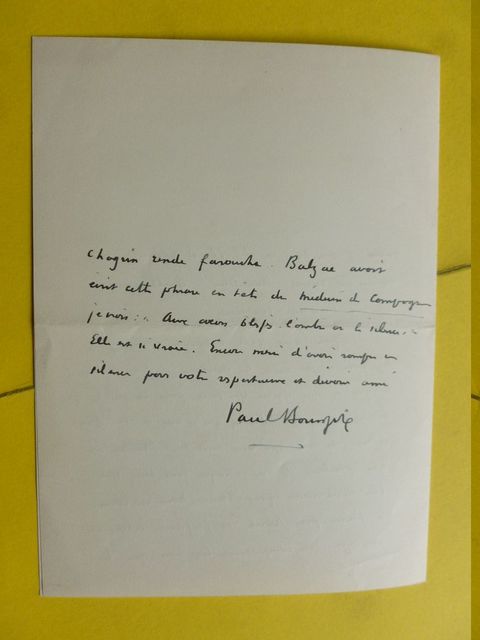 chagrin rende farouche. Balzac avait
écrit cette phrase en tête du Médecin de Campagne
je crois : « Aux cœurs blessés l'ombre et le silence. »
Elle est si vraie. Encore merci d'avoir rompu ce
silence pour votre respectueux et dévoué ami
Paul Bourget